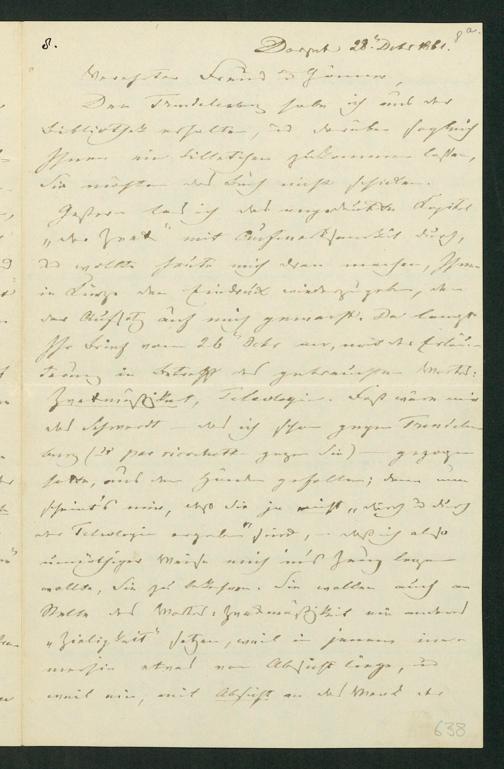 8.
8a.
Dorpat 28n Octbr 1861.
Verehrter Freund u Gönner,
Den Trendelenburg habe ich aus der
Bibliothek erhalten, und darüber sogleich
Ihnen ein Billetchen zukommen lassen,
Sie möchten das Buch nicht schicken.
Gestern las ich das angedeutete Capitel
„der Zweck" mit Aufmerksamkeit durch,
u wollte heute mich dran machen, Ihnen
in Kürze den Eindruck wiederzugeben, den
der Aufsatz auf mich gemacht. Da langt
Ihr Brief vom 26n Octbr an, mit der Erläu-
terung in Betreff des gebrauchten Wortes:
Zweckmäßigkeit, Teleologie. Fast wäre mir
das Schwerdt – das ich schon gegen Trendelen
burg (u par ricochette gegen Sie) – gezogen
hatte, aus den Händen gefallen; denn nun
scheint's mir, daß Sie ja nicht „durch u durch
der Teleologie ergeben" sind, – daß ich also
unnöthiger Weise mich in's Zeug legen
wollte, Sie zu bekehren. Sie wollen auch an
Stelle des Wortes: Zweckmäßigkeit ein anderes
„Zieligkeit" setzen, weil in jenem immer
merhin etwas von Absicht liege, und
weil ein, mit Absicht an das Werk
638